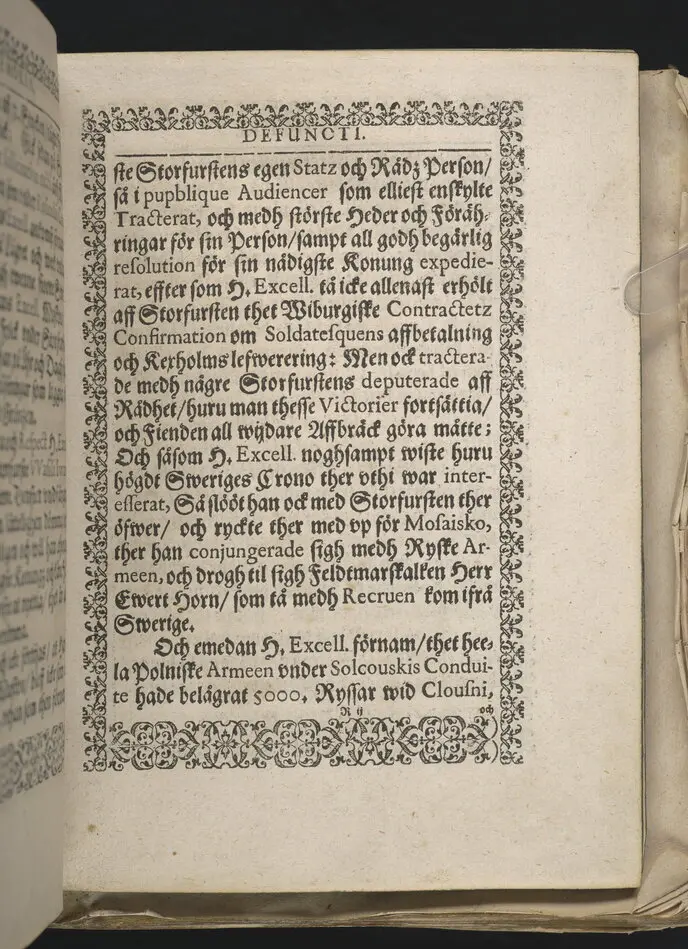 DEFUNCTI.
ste Storfurstens egen Statz och Rådz Person/
så i pupblique Audiencer som elliest enskylte
Tracterat, och medh störste Heder och Föräh-
ringar för sin Person/sampt all godh begärlig
resolution för sin nådigste Konung expedie-
rat, effter som H. Excell. tå icke allenast erhölt
aff Storfursten thet Wiburgiske Contractetz
Confirmation om Soldatesquens affbetalning
och Kexholms lefwerering: Men ock tractera-
de medh någre Storfurstens deputerade aff
Rådhet/huru man thesse Victorier fortsättia/
och Fienden all wijdare Affbräck göra måtte;
Och såsom H. Excell. noghsampt wiste huru
högdt Sweriges Crono ther vthi war inter-
esserat, Så slööt han ock med Storfursten ther
öfwer/ och ryckte ther med vp för Mosaisko,
ther han conjungerade sigh medh Ryske Ar-
meen, och drogh til sigh Feldtmarskalken Herr
Ewert Horn/ som tå medh Recruen kom ifrå
Swerige.
Och emedan H. Excell. förnam/thet hee-
la Polniske Armeen vnder Solcouskis Condui-
te hade belägrat 5000. Ryssar wid Clousni,
R ij
och